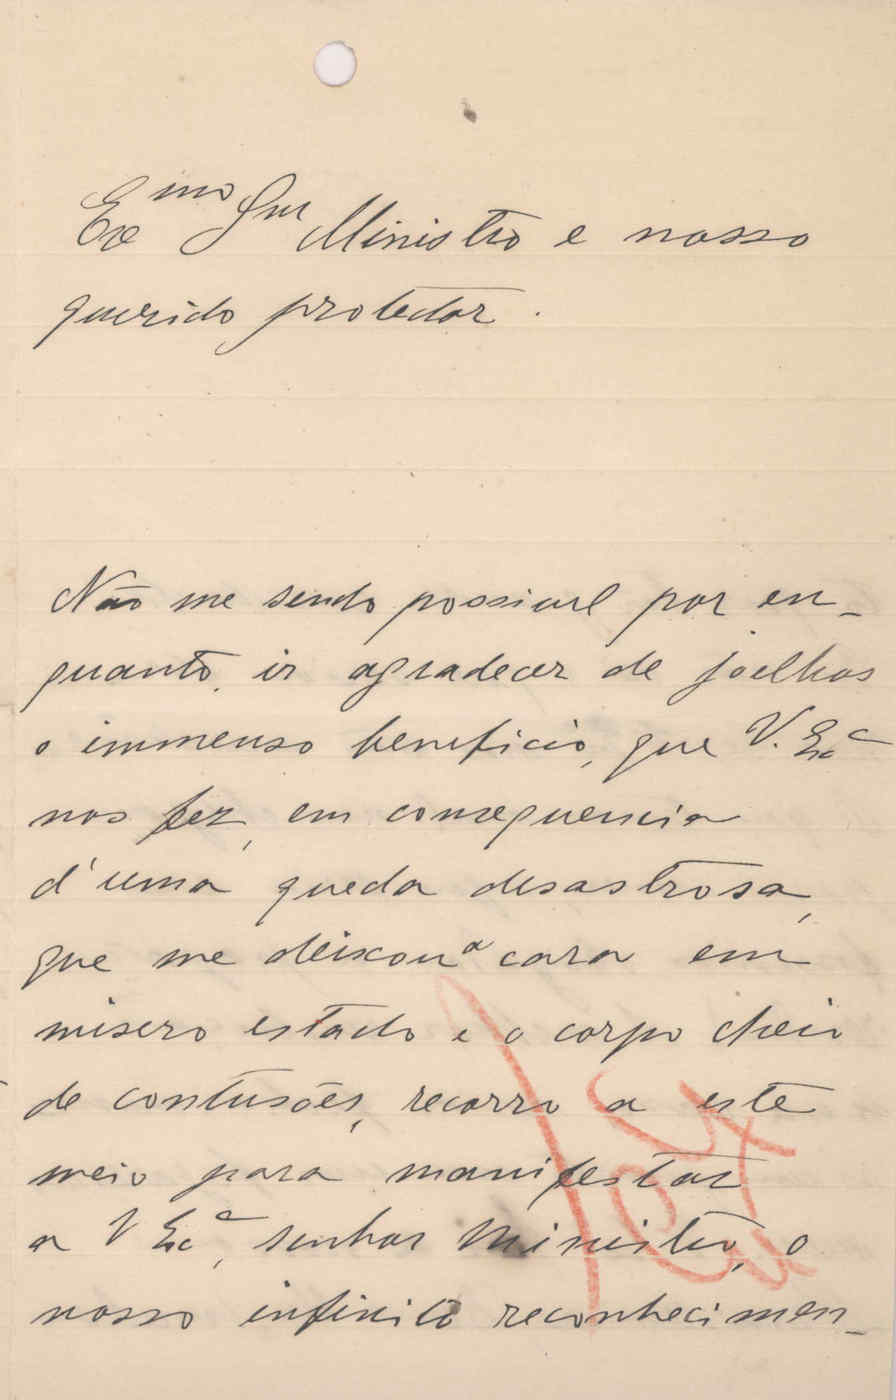 Ex.mo Snr Ministro e nosso
querido protector.
Não me sendo possivel por en-
quanto, ir agradecer de joelhos
o immenso beneficio, que V. Exca
nos fez, em consequencia
d'uma queda desastrosa,
que me deixou a cara em
misero estado e o corpo cheio
de contusões, recorro a este
meio para manifestar
a V Exca, senhor Ministro, o
nosso infinito reconhecimen-